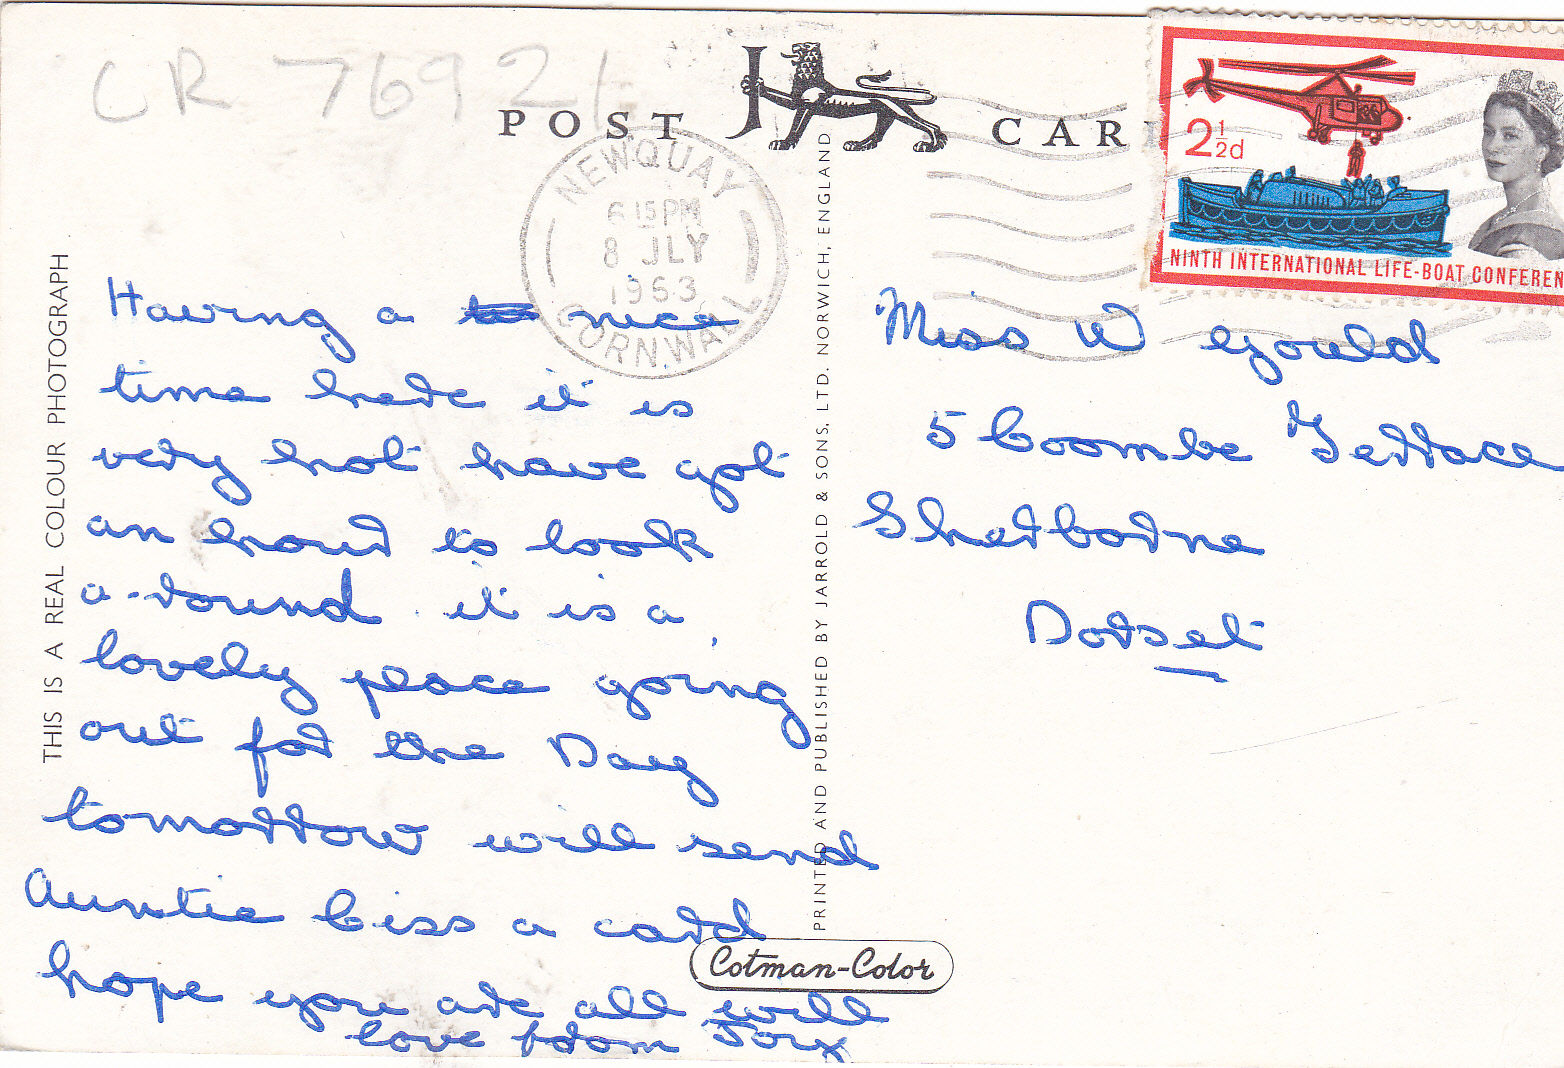 CR 76921
POST CAR
NEWQUAY
6 15 PM
8 JLY
1963
CORNWALL
2½d
NINTH INTERNATIONAL LIFE-BOAT CONFEREN
THIS IS A REAL COLOUR PHOTOGRAPH
Having a nice
time here it is
very hot have got
an hour to look
a-round it is a
lovely place going
out for the Day
tomorrow will send
Auntie Ciss a card
hope you are all well
love from Joy x
PRINTED AND PUBLISHED BY JARROLD & SONS, LTD. NORWICH, ENGLAND
Cotman-Color
Miss W Gould
5 Coombe Terrace
Sherborne
Dorset